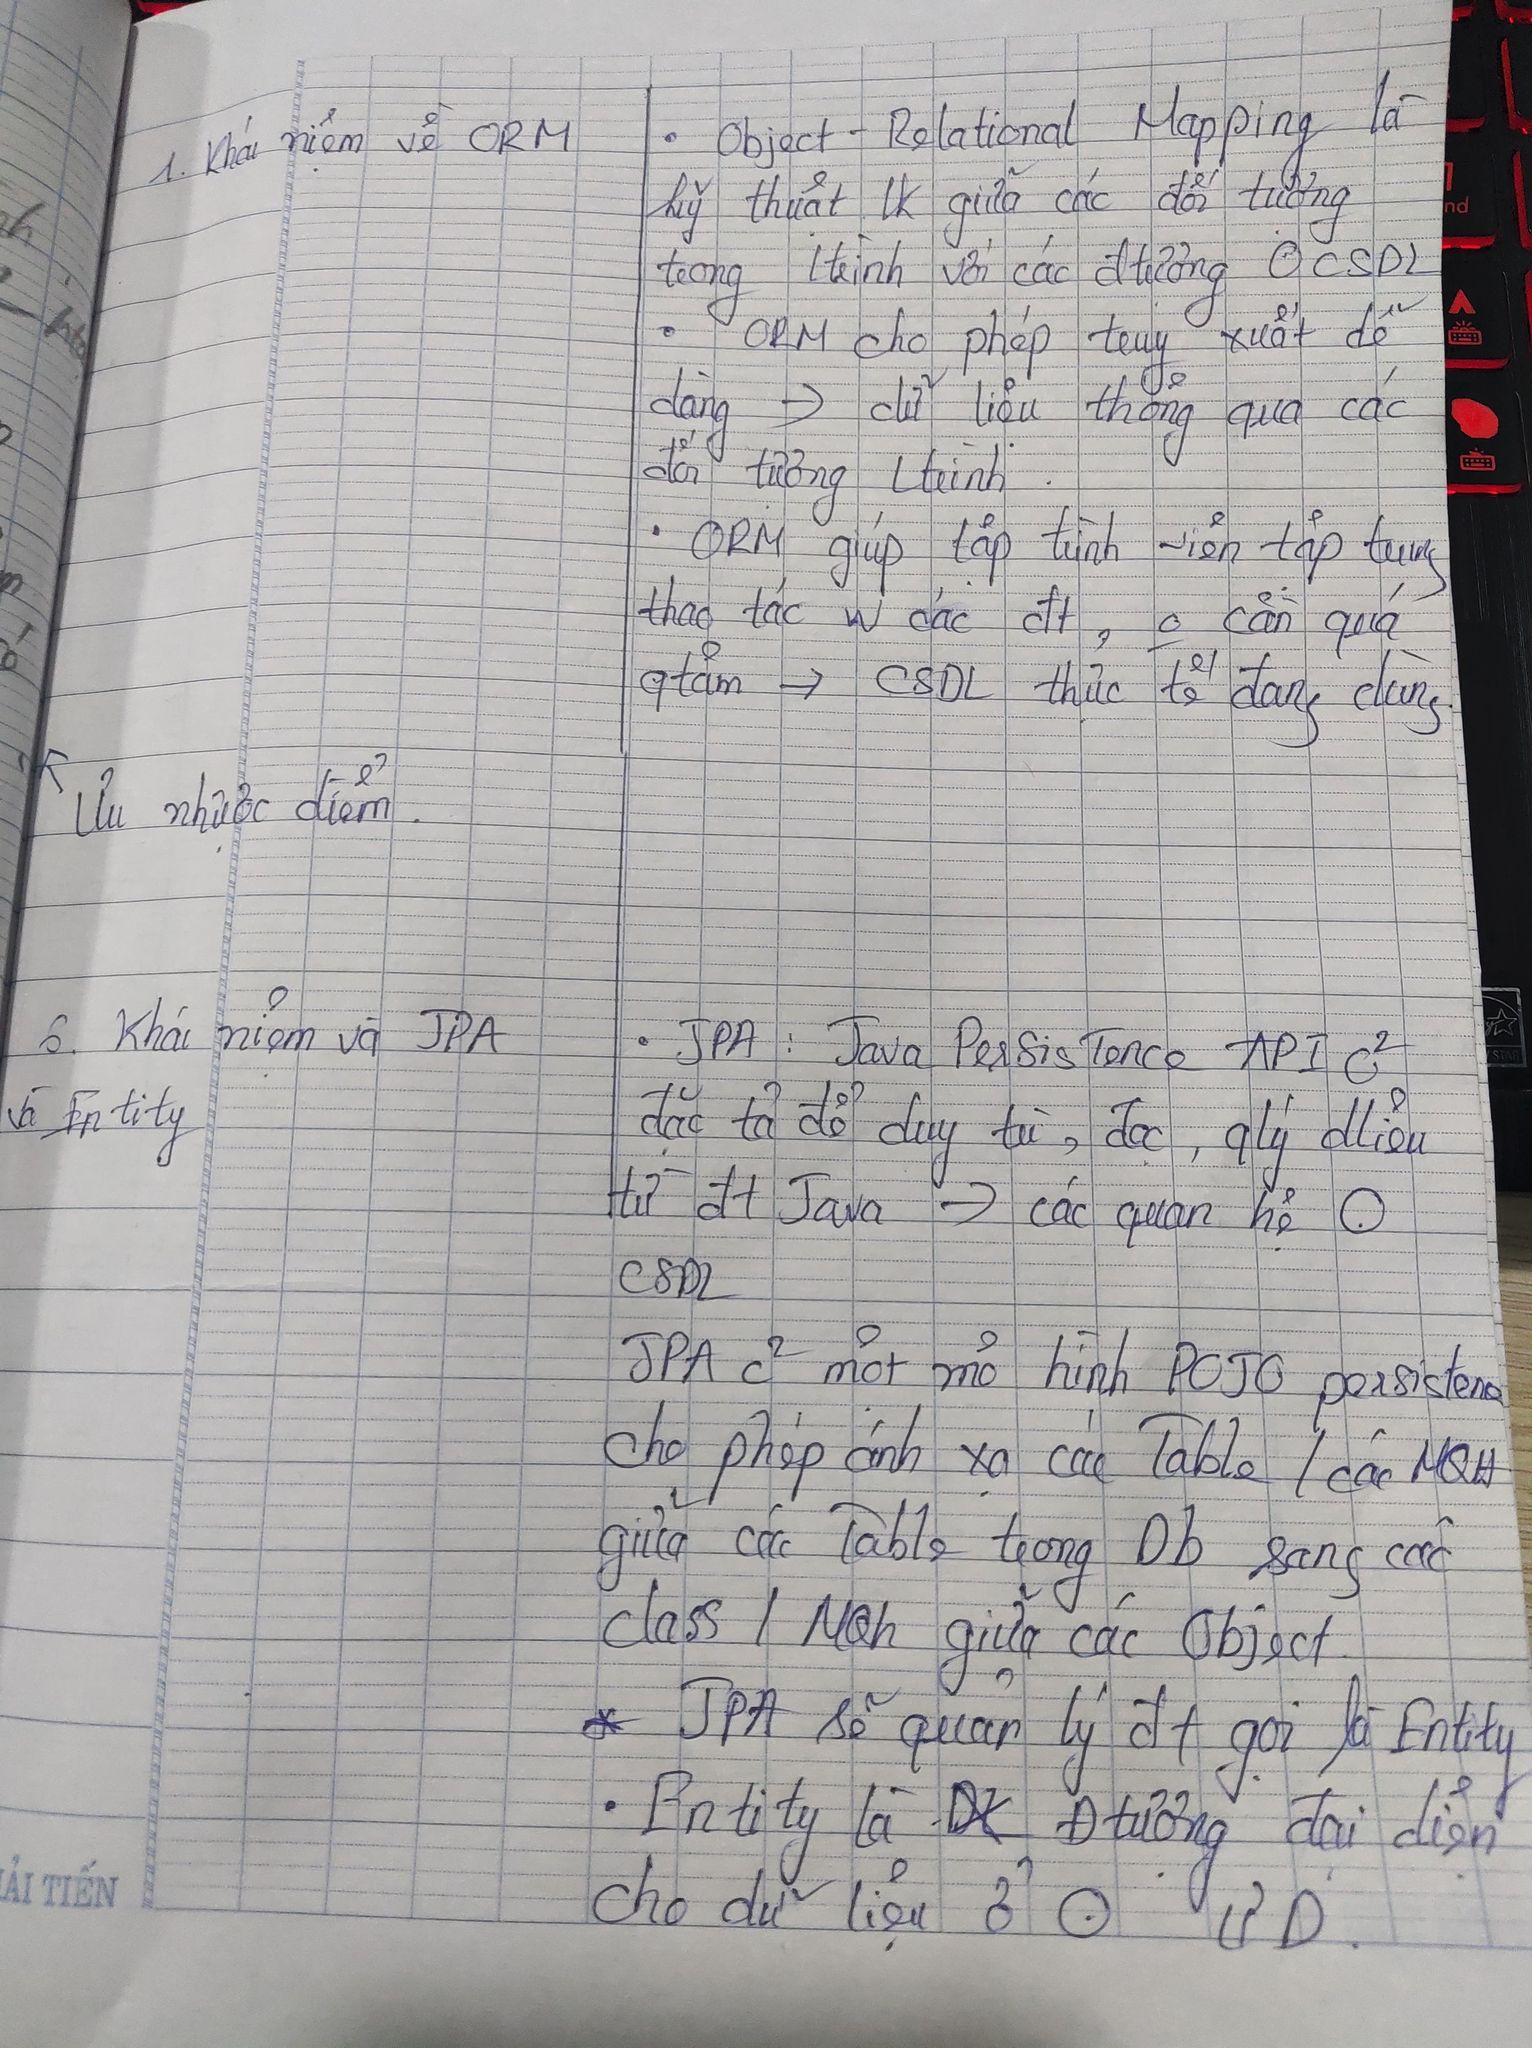 1. Khái niệm về ORM
• Object - Relational Mapping là
kỹ thuật lk giữa các đối tượng
trong ltrình với các đtượng ⊙ CSDL
• ORM cho phép truy xuất dễ
dàng → dữ liệu thông qua các
đối tượng ltrình.
• ORM giúp lập trình viên tập trung
thao tác w các đt, o cần quá
qtâm → CSDL thực tế đang dùng.
Ưu nhược điểm.
6. Khái niệm về JPA
và Entity
• JPA : Java Persistence API c²
đặc tả để duy trì, đọc, qlý dliệu
từ đt Java → các quan hệ ⊙
CSDL
JPA c² một mô hình POJO persistenc
cho phép ánh xạ các Table / các MQH
giữa các Table trong Db sang các
class / MQh giữa các Object.
* JPA sẽ quản lý đt gọi là Entity
• Entity là Đtượng đại diện
cho dữ liệu ở ⊙ ƯD.
ẢI TIẾN
nd
STAR